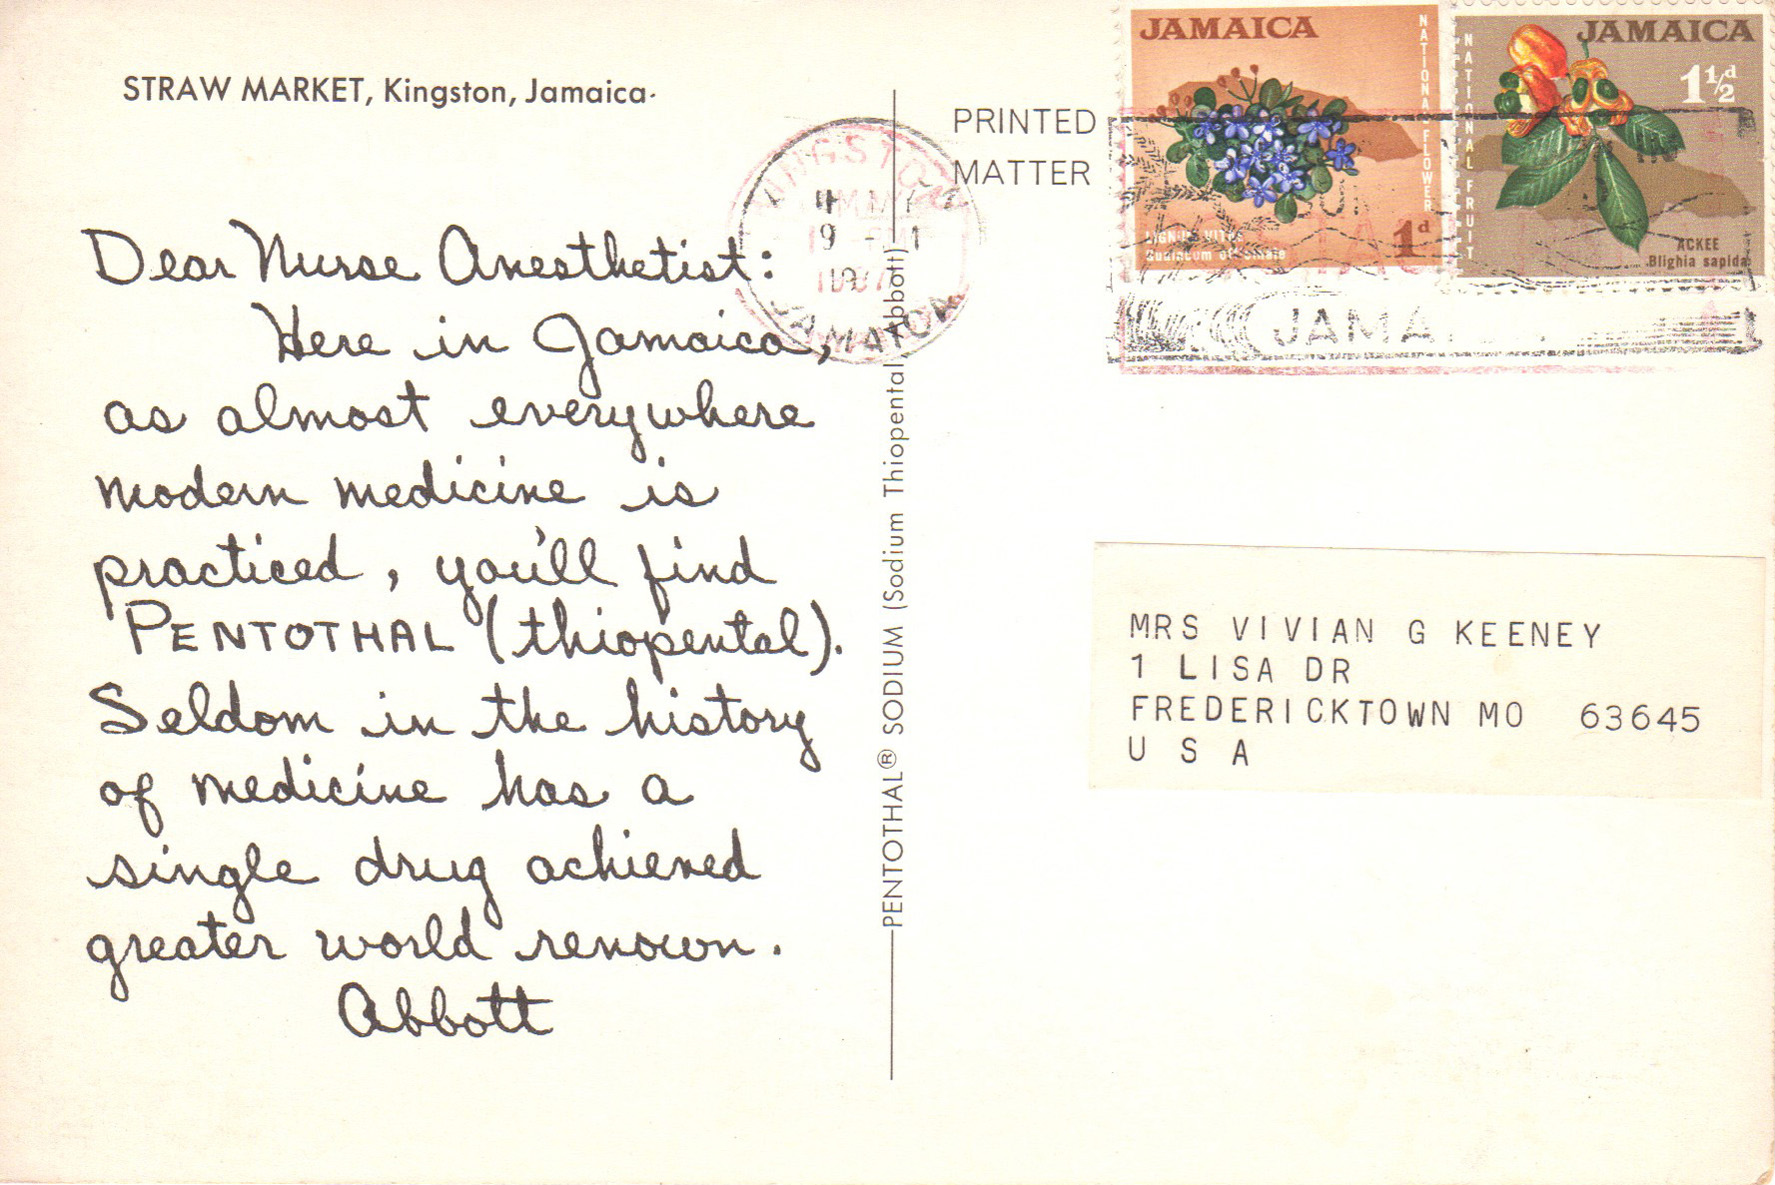 STRAW MARKET, Kingston, Jamaica.
Dear Nurse Anesthetist:
Here in Jamaica,
as almost everywhere
modern medicine is
practiced, you'll find
PENTOTHAL (thiopental).
Seldom in the history
of medicine has a
single drug achieved
greater world renown.
Abbott
PENTOTHAL® SODIUM (Sodium Thiopental, Abbott)
KINGSTON
JAMAICA
PRINTED
MATTER
JAMAICA
NATIONAL FLOWER
LIGNUM VITAE
1d
JAMAICA
1½d
NATIONAL FRUIT
ACKEE
Blighia sapida
MRS VIVIAN G KEENEY
1 LISA DR
FREDERICKTOWN MO 63645
U S A